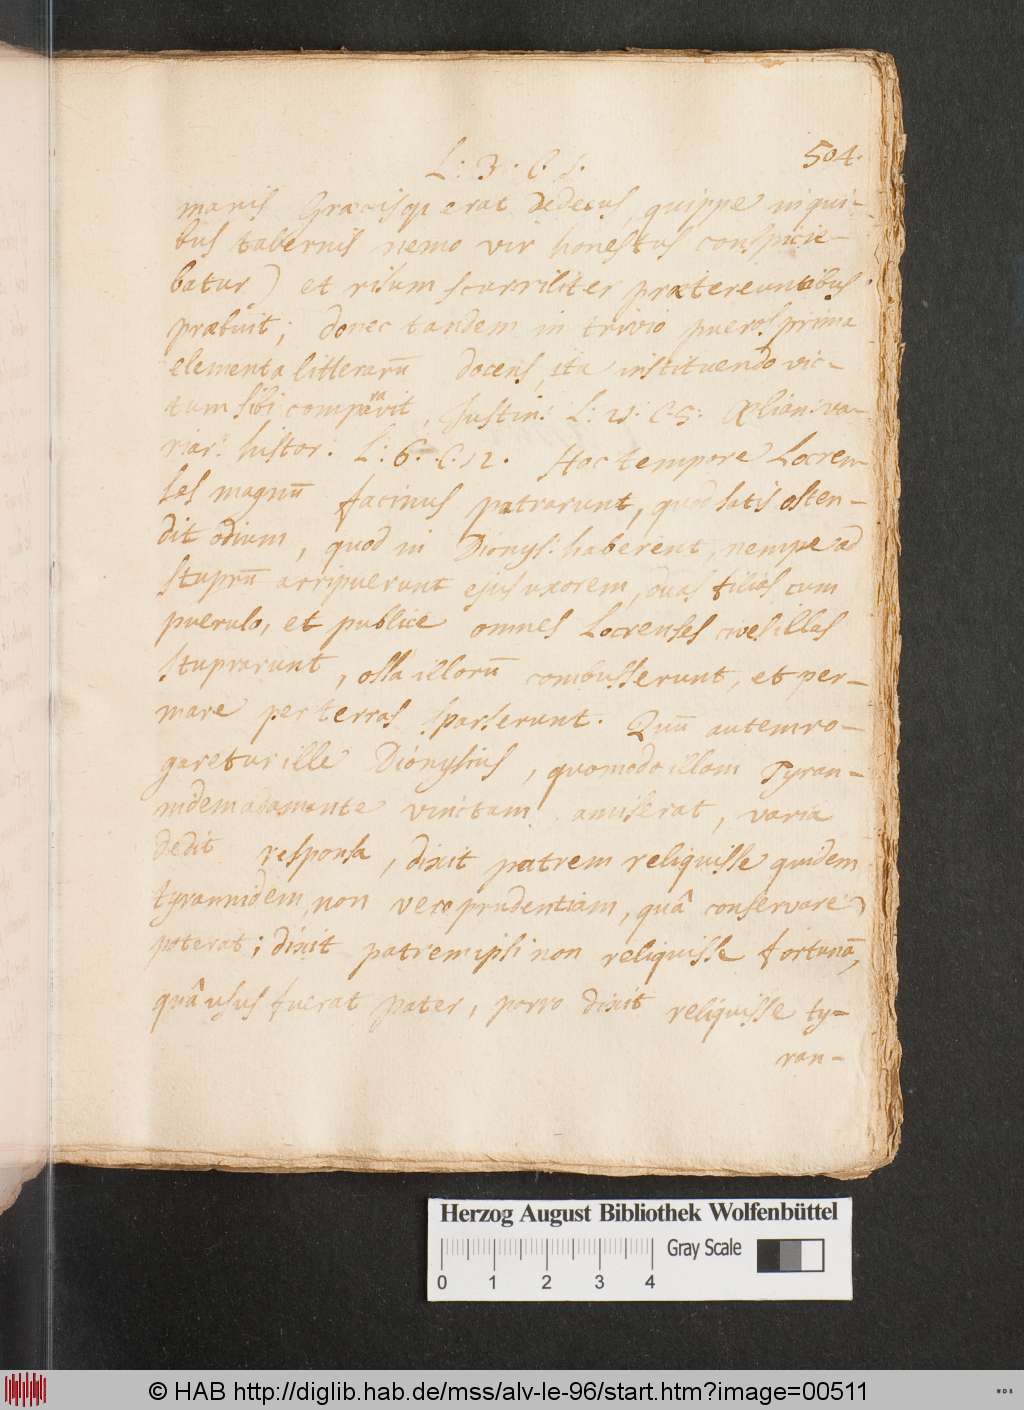 L: 3. C. 1.
504.
manis Græcisqꝫ erat dedecus, quippe in qui-
bus tabernis nemo vir honestus conspicie-
batur) et risum scurriliter prætereuntibus
præbuit; donec tandem in trivio pueros prima
elementa litterarū docens, ita instituendo vic-
tum sibi comparavit, Justin: L: 21: C: 5: Ælian: va-
riar: histor. L: 6. C. 12. Hoc tempore Locren-
ses magnū facinus patrarunt, quod satis osten-
dit odium, quod in Dionys: haberent, nempe ad
stuprū arripuerunt ejus uxorem, duas filias cum
puerulo, et publice omnes Locrenses cives illas
stuprarunt, ossa illorū combusserunt, et per-
mare per terras sparserunt. Quū autem ro-
garetur ille Dionysius, quomodo illam Tyran-
nidem adamante vinctam amiserat, varia
dedit responsa, dixit patrem reliquisse quidem
tyrannidem, non vero prudentiam, quâ conservare
poterat; dixit patrem ipsi non reliquisse fortunā,
quâ usus fuerat pater, porro dixit reliquisse ty-
ran-
Herzog August Bibliothek Wolfenbüttel
Gray Scale
0 1 2 3 4
© HAB http://diglib.hab.de/mss/alv-le-96/start.htm?image=00511